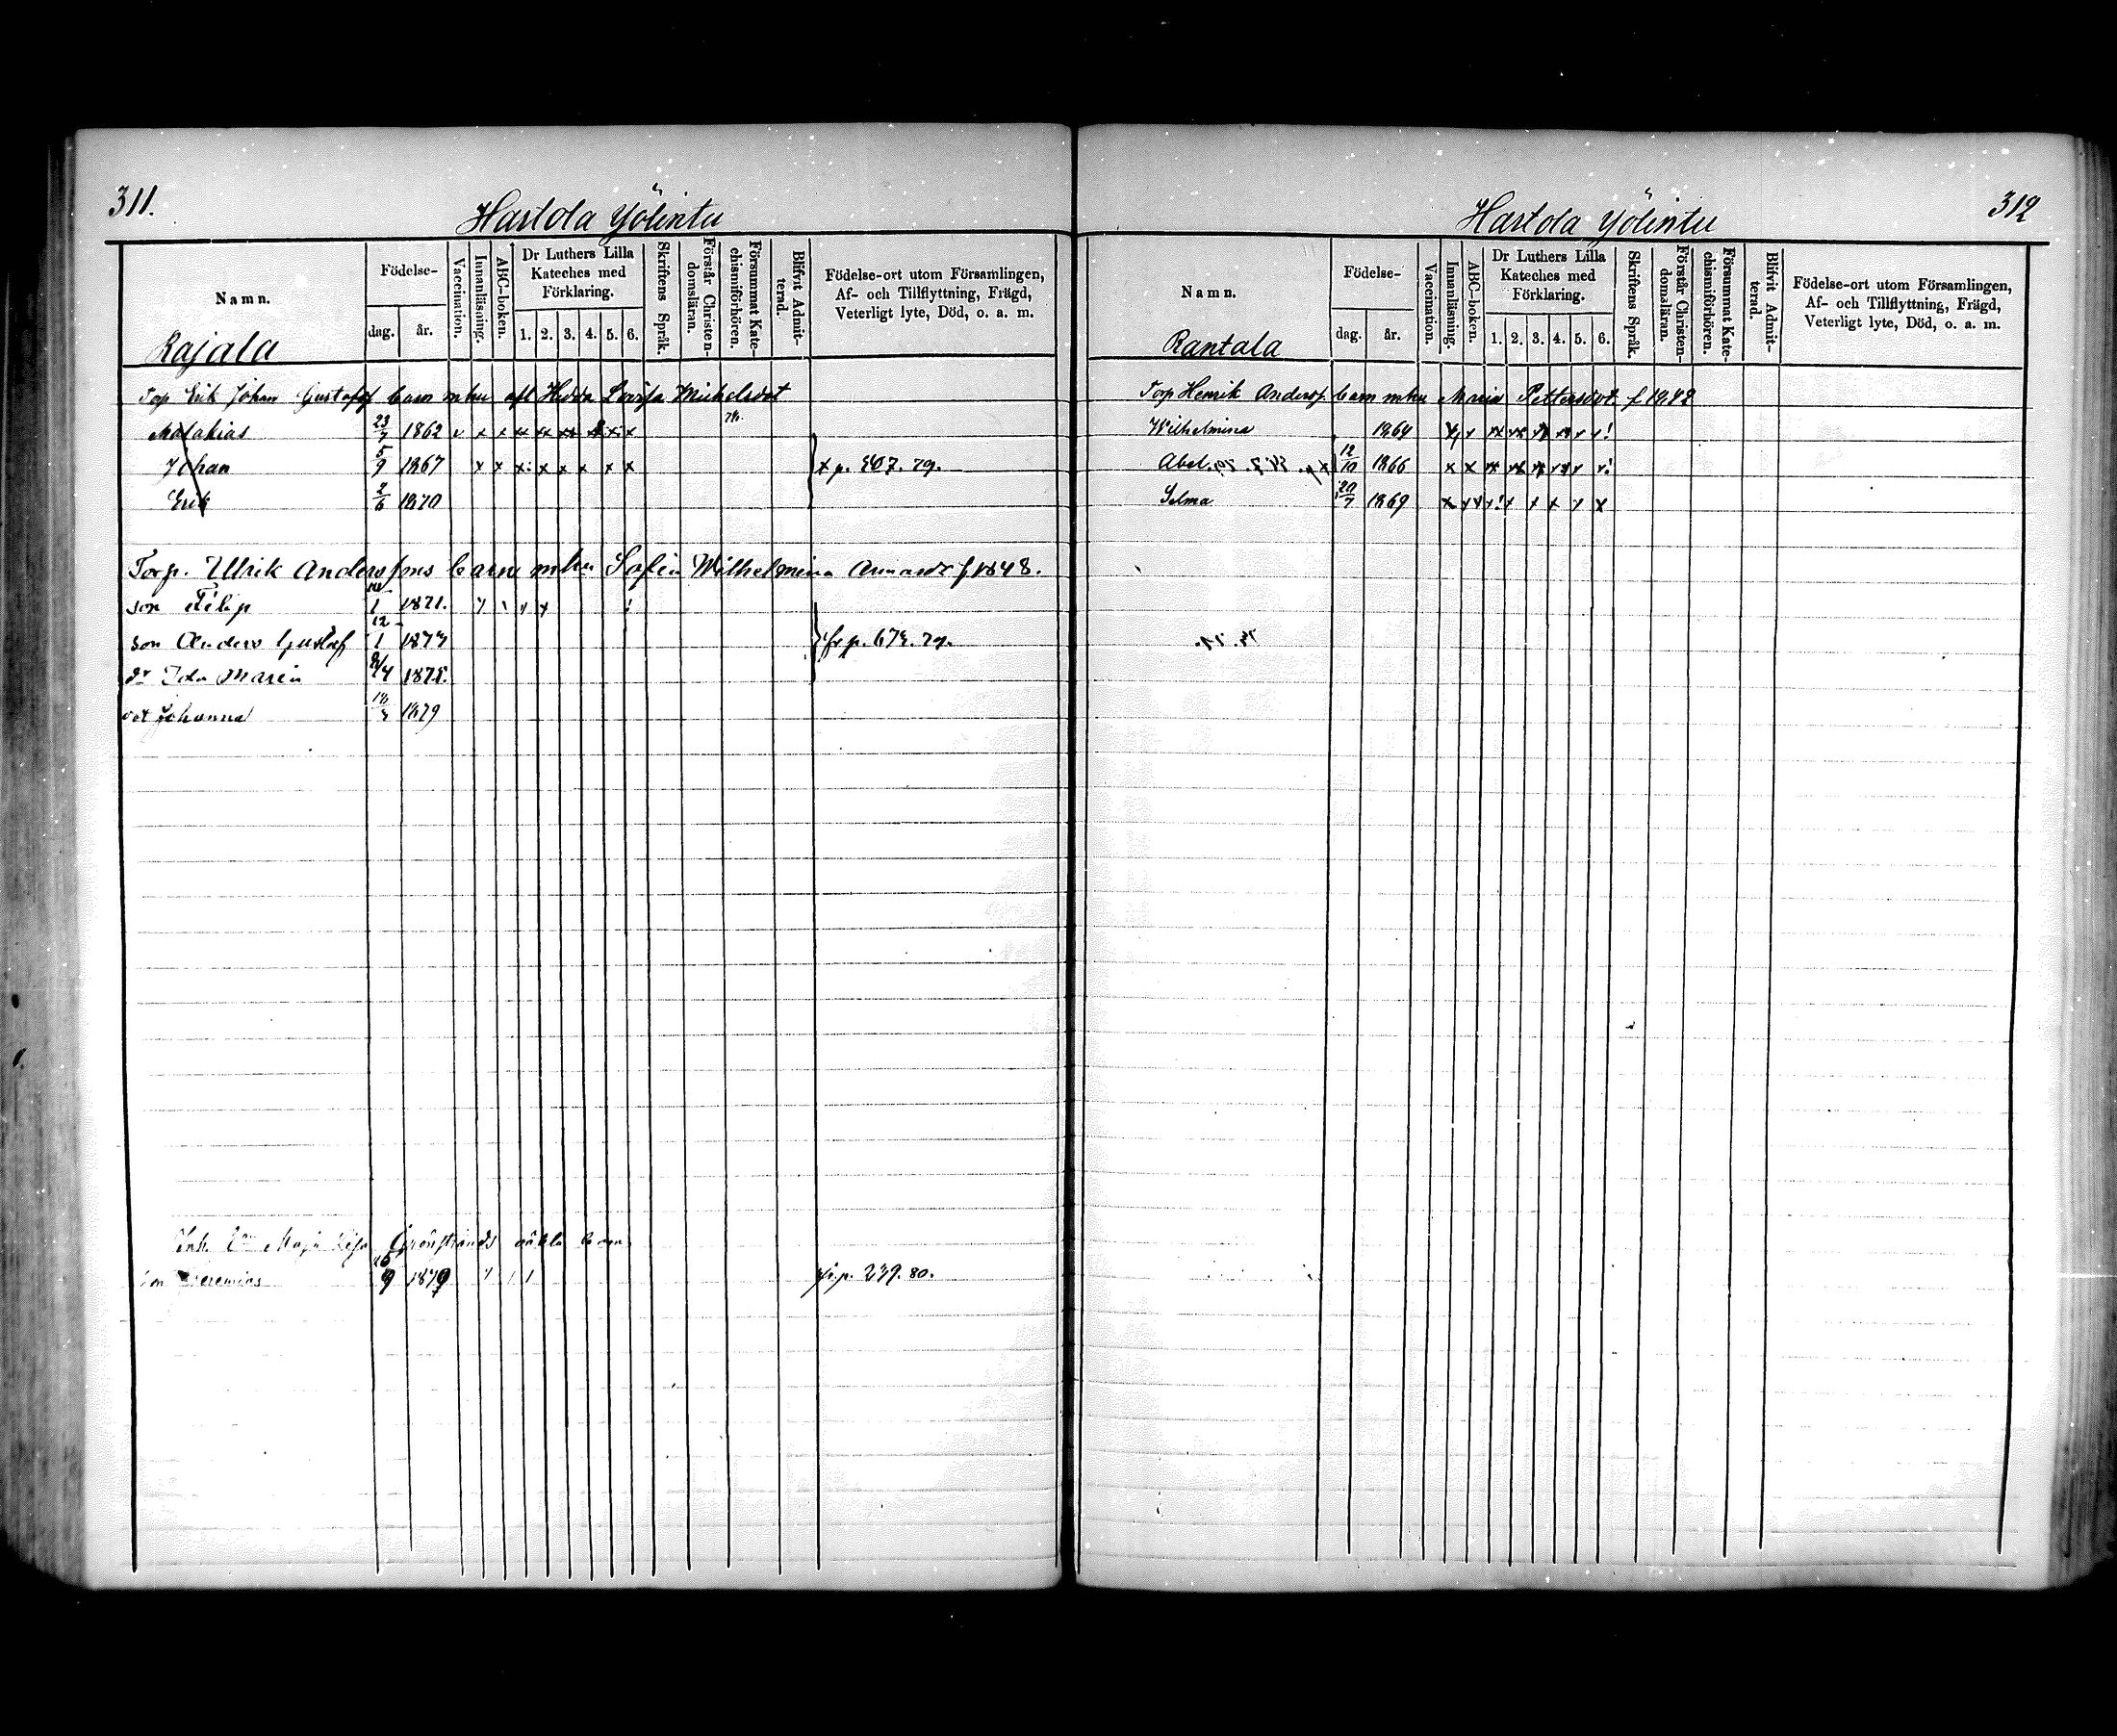 311.
Hartola Yölintu
Namn.
Födelse-
dag. år.
Vaccination.
Innanläsning.
ABC-boken.
Dr Luthers Lilla
Kateches med
Förklaring.
1. 2. 3. 4. 5. 6.
Skriftens Språk.
Förstår Christen-
domsläran.
Försummat Kate-
chismiförhören.
Blifvit Admit-
terad.
Födelse-ort utom Församlingen,
Af- och Tillflyttning, Frägd,
Veterligt lyte, Död, o. a. m.
Rajala
Torp Erik Johan Gustafss barn mhu afl Hedda Lovisa Michelsdot
Malakias 23/7 1862 v x x xx xx xx x x x
Johan 5/9 1867 x x x x x x x x x p. 207. 79.
Erik 2/6 1870
Torp. Ulrik Anderssons barn mhu Sofia Wilhelmina f 1848.
son Filip 1 1871.
son Anders Gustaf 12/1 1873 fr p. 673. 79.
dr Ida Maria 1875.
dot Johanna 1879
Inh. Maja Lisa Grönstrands oäkta barn
son Jeremias 9 1879 fr.p. 239. 80.
312
Hartola Yölintu
Namn.
Födelse-
dag. år.
Vaccination.
Innanläsning.
ABC-boken.
Dr Luthers Lilla
Kateches med
Förklaring.
1. 2. 3. 4. 5. 6.
Skriftens Språk.
Förstår Christen-
domsläran.
Försummat Kate-
chismiförhören.
Blifvit Admit-
terad.
Födelse-ort utom Församlingen,
Af- och Tillflyttning, Frägd,
Veterligt lyte, Död, o. a. m.
Rantala
Torp Henrik Anderss. barn mhu Maria Pettersdot. f
Wilhelmina 1864
Abel 12/10 1866
Selma 20/7 1869